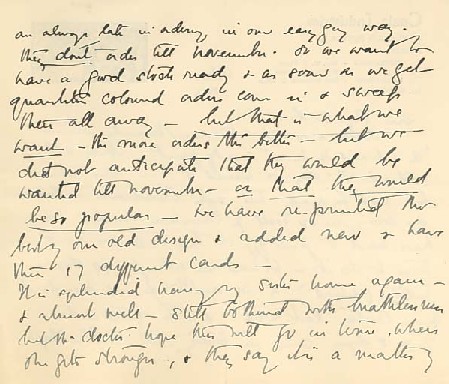 are always late in ordering in our easy going way.
They don't order till November. So we want to
have a good stock ready & as soon as we get
quantities coloured orders come in & sweep
them all away – but that is what we
want – the more orders the better – but we
did not anticipate that they would be
wanted till November – or that they would
be so popular – we have re-printed the
best of our old designs & added new & have
then 17 different cards –
It is splendid having my sister home again –
& almost well – still bothered with breathlessness
but the doctors hope this will go in time, when
she gets stronger, & they say it is a matter of